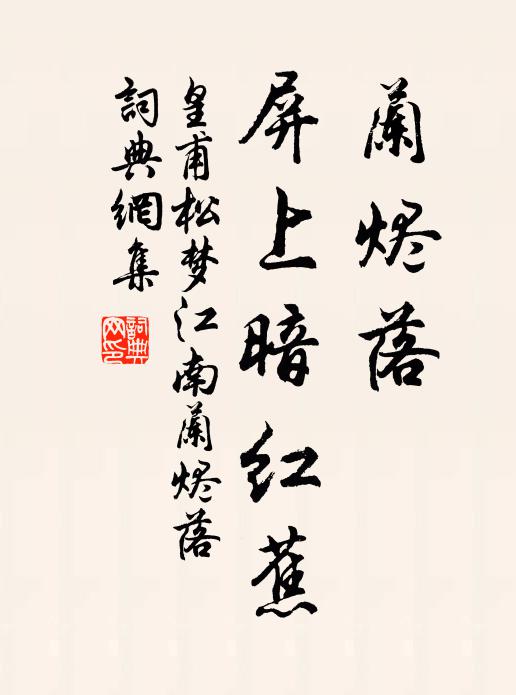 蘭烬落
屏上暗红蕉
皇甫松梦江南蘭烬落
詞典網集
詞典网印